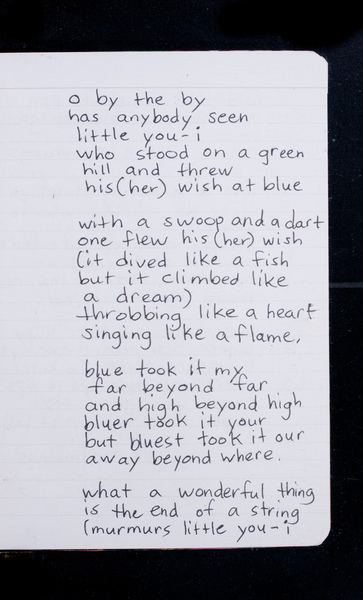 o by the by
has anybody seen
little you-i
who stood on a green
hill and threw
his(her) wish at blue
with a swoop and a dart
one flew his (her) wish
(it dived like a fish
but it climbed like
a dream)
throbbing like a heart
singing like a flame,
blue took it my
far beyond far
and high beyond high
bluer took it your
but bluest took it our
away beyond where.
what a wonderful thing
is the end of a string
(murmurs little you-i